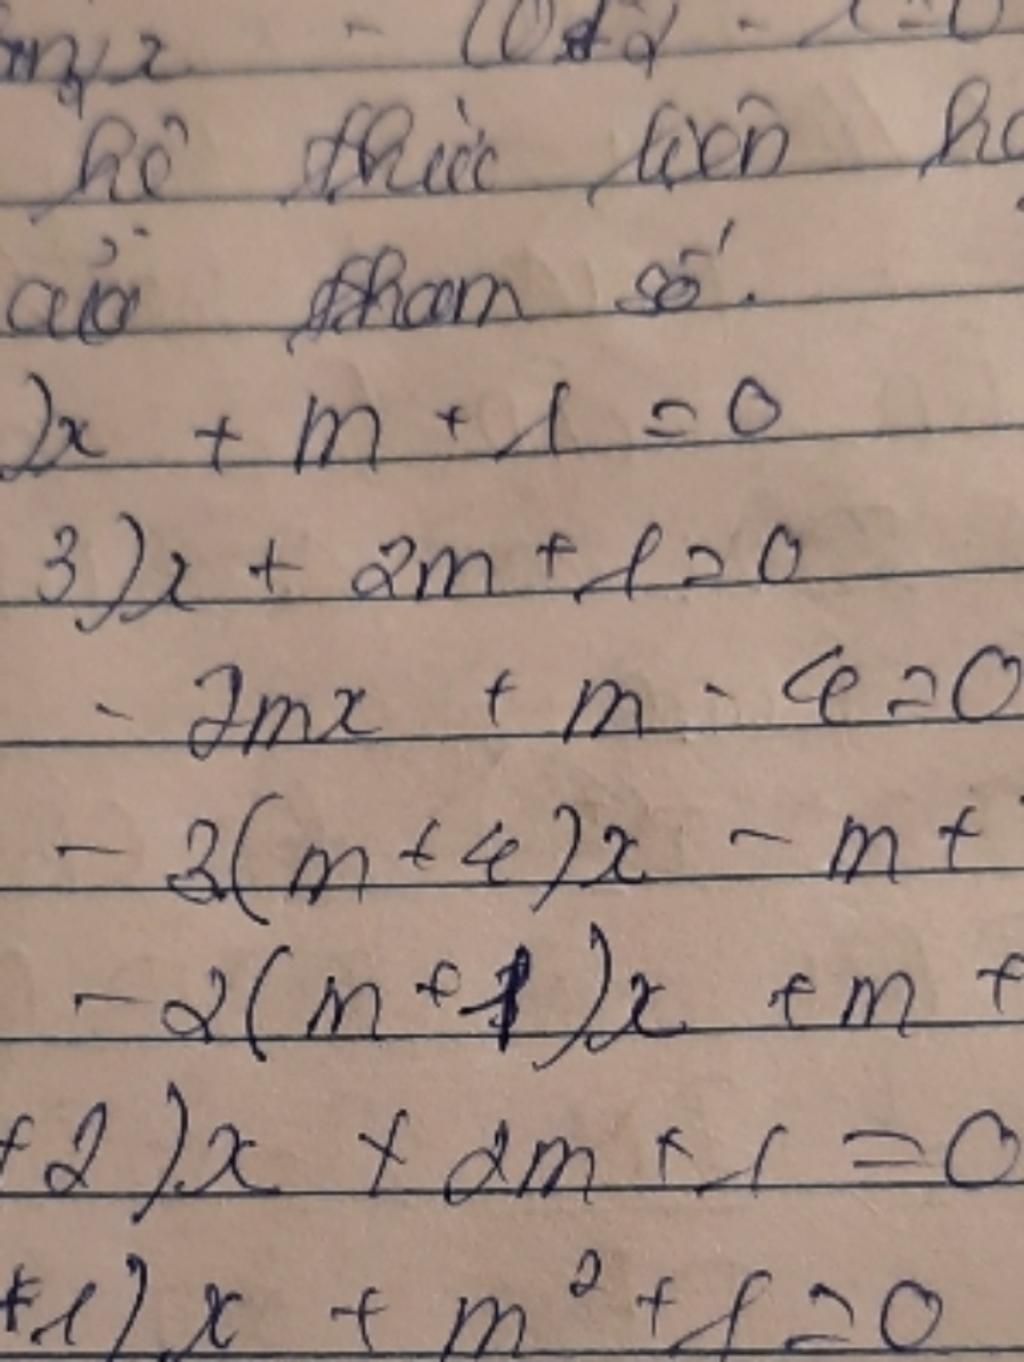 hệ thức liên
của tham số.
)x + m + 1 = 0
3)x + 2m + 1 = 0
- 2mx + m - 4 = 0
- 3(m + 4)x - m +
- 2(m + 1)x + m +
+2)x + 2m + 1 = 0
+1)x + m² + 1 = 0